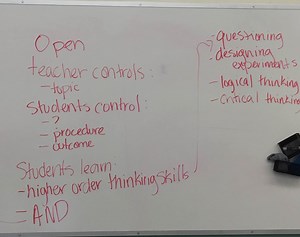 Open
teacher controls:
- topic
Students control:
- ?
- procedure
- outcome
Students learn:
- higher order thinking skills
= AND
- questioning
- designing
experiments
- logical thinking
- critical thinking